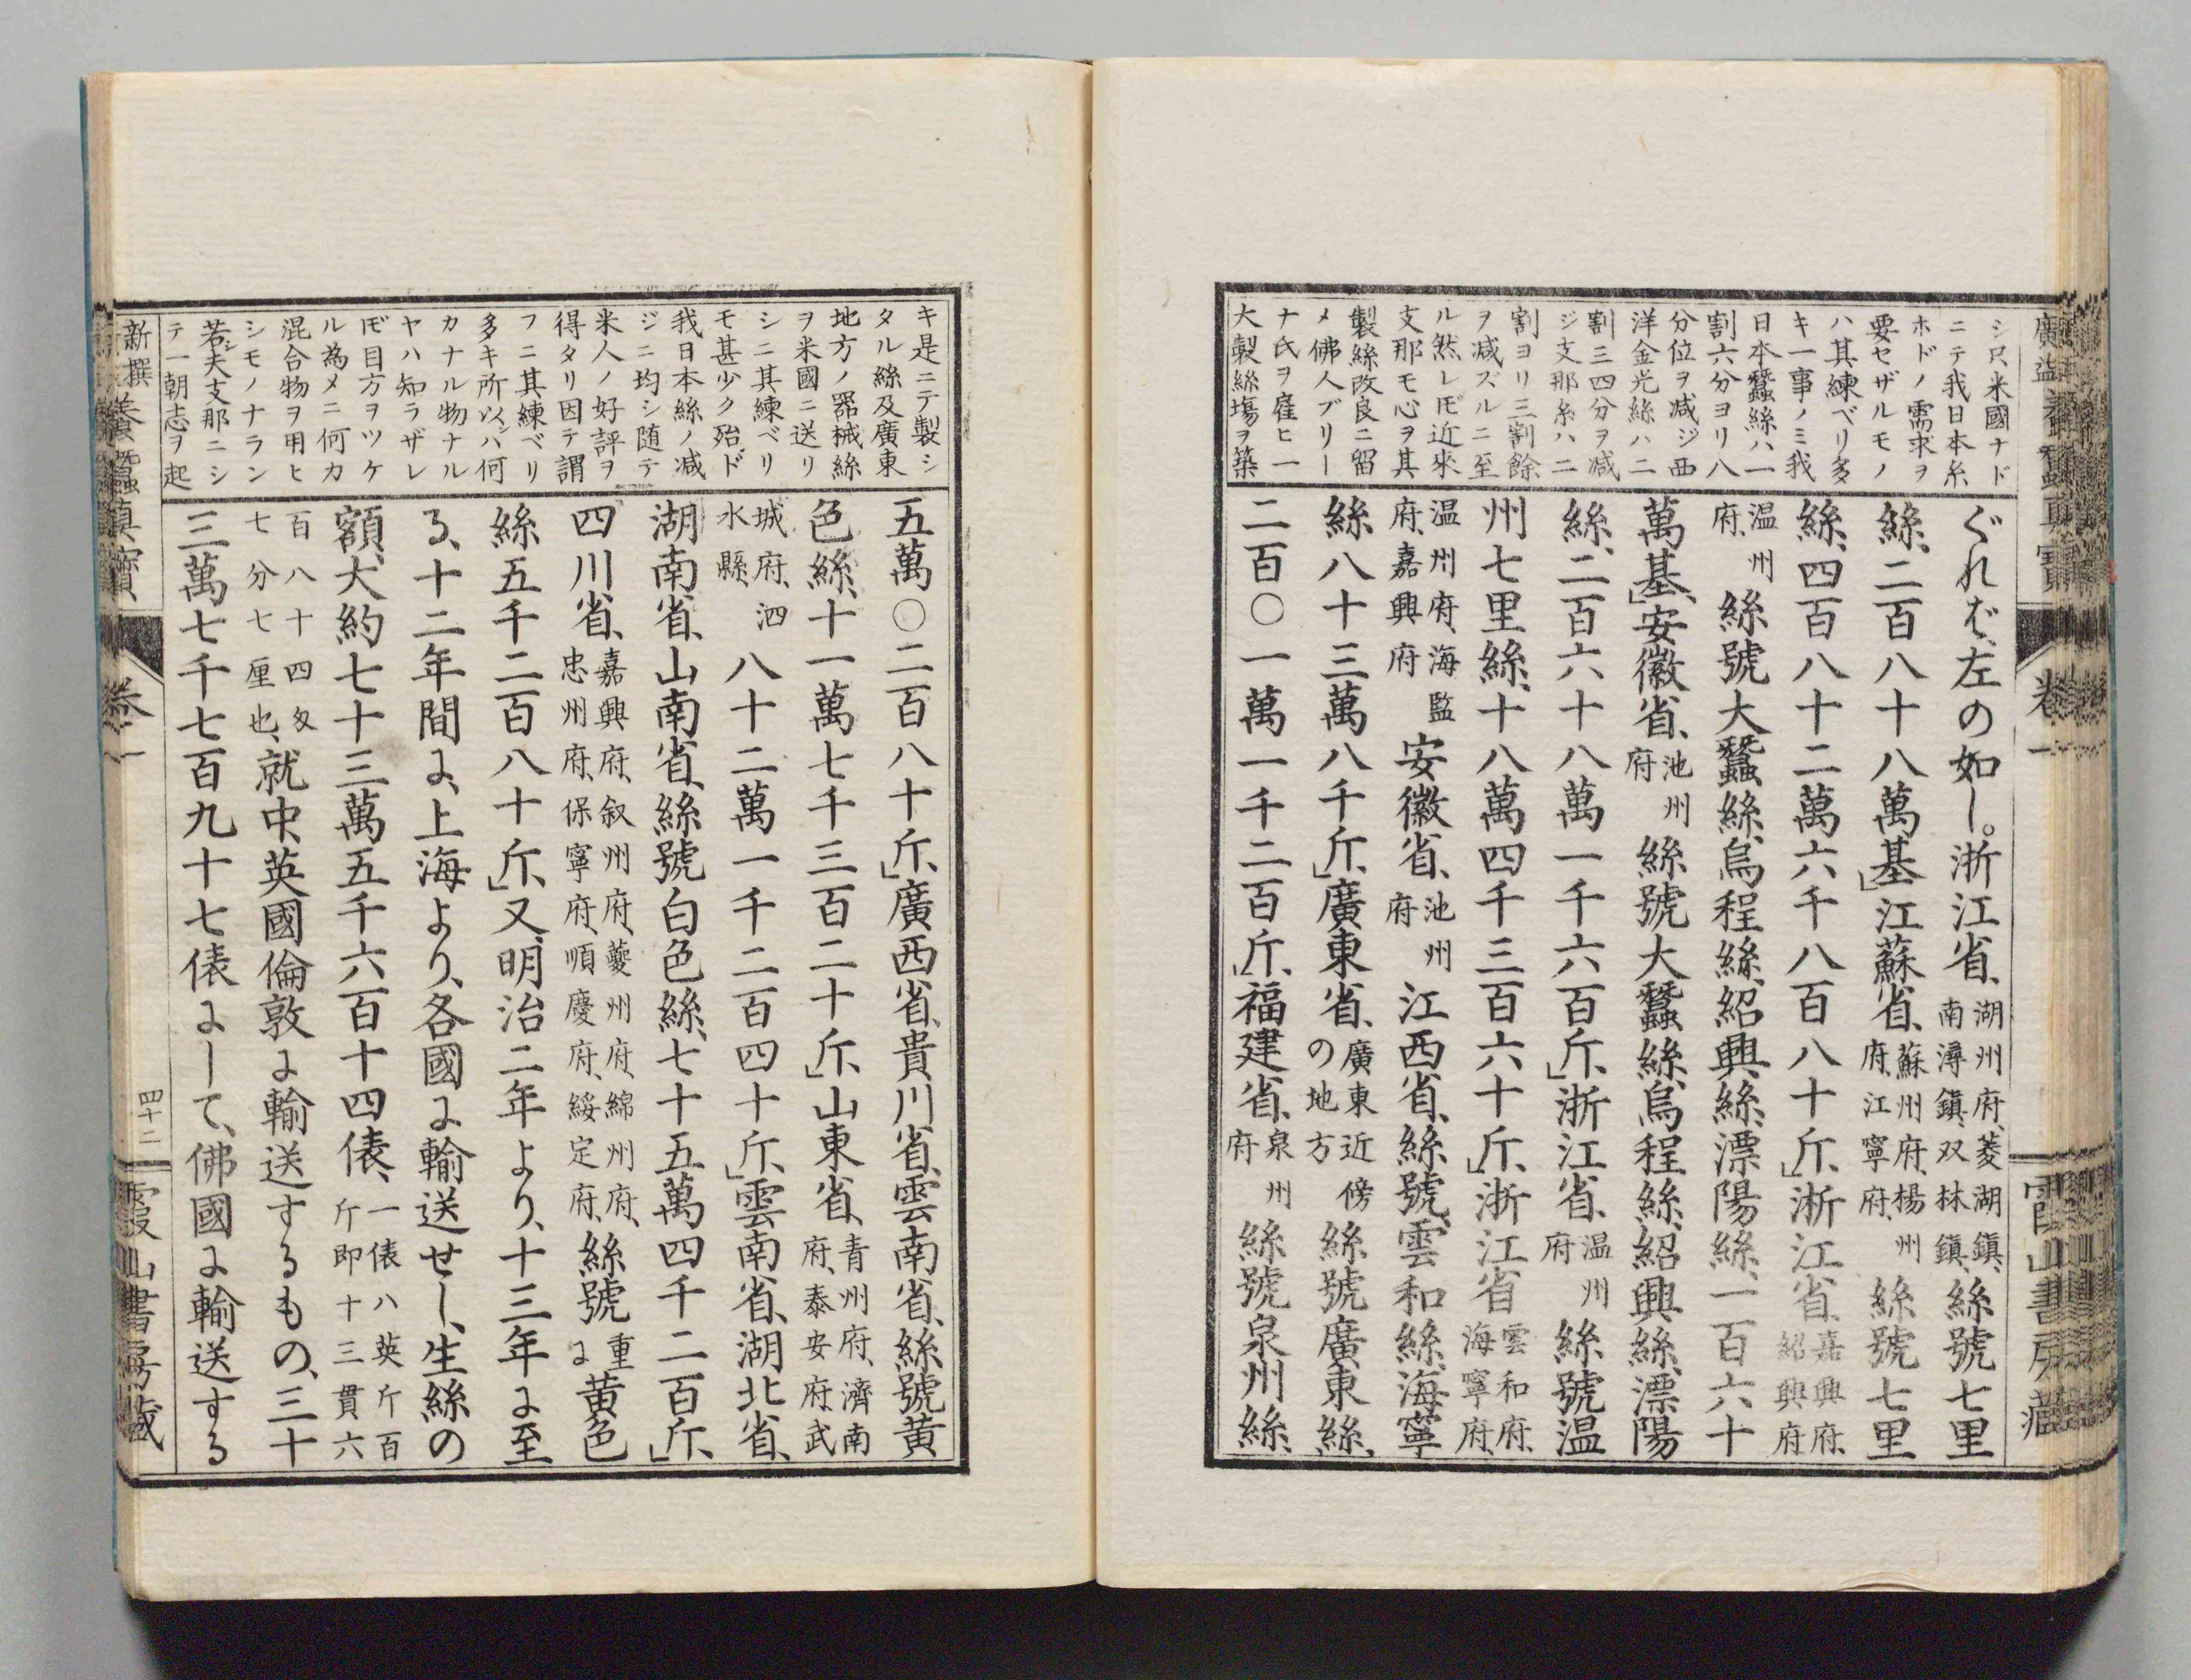 シ只米國ナド
ニテ我日本糸
ホドノ需求ヲ
要セザルモノ
ハ其練ベリ多
キ一事ノミ我
日本蠶絲ハ一
割六分ヨリ八
分位ヲ減ジ西
洋金光絲ハ二
割三四分ヲ減
ジ支那糸ハ二
割ヨリ三割餘
ヲ減ズルニ至
ル然レ𪜈近來
支那モ心ヲ其
製絲改良ニ留
メ佛人ブリー
ナ氏ヲ雇ヒ一
大製絲塲ヲ築
ぐれバ、左の如し。浙江省、湖州府、菱湖鎭、南潯鎭、双林鎭、絲號七里
絲、二百八十八萬、基」江蘇省、蘇州府、楊州府、江寧府、絲號七里
絲、四百八十二萬六千八百八十斤、」浙江省、嘉興府、紹興府、
温州府、絲號大蠶絲、烏程絲、紹興、絲、漂陽絲、一百六十
萬基、」安徽省、池州府絲號大蠶絲、烏程絲、紹興絲、漂陽
絲、二百六十八萬一千六百斤、」浙江省、温州府絲號温
州七里絲、十八萬四千三百六十斤、」浙江省雲和府、海寧府、
温州府、海監府、嘉興府安徽省、池州府江西省、絲號、雲和絲、海寧
絲、八十三萬八千斤、」廣東省、廣東近傍の地方絲號廣東絲、
二百〇一萬一千二百斤、」福建省、泉州府絲號泉州絲、
廣益
卷一
霞山書房藏
キ是ニテ製シ
タル絲及廣東
地方ノ器械絲
ヲ米國ニ送リ
シニ其練ベリ
モ甚少ク殆ド
我日本絲ノ減
ジニ均シ随テ
米人ノ好評ヲ
得タリ因テ謂
フニ其練ベリ
多キ所以ハ何
カナル物ナル
ヤハ知ラザレ
𪜈目方ヲツケ
ル為メニ何カ
混合物ヲ用ヒ
シモノナラン
若シ夫支那ニシ
テ一朝志ヲ起
五萬〇二百八十斤、」廣西省、貴川省、雲南省、絲號黄
色絲、十一萬七千三百二十斤、」山東省、青州府、濟南府、泰安府、武
城府、泗水縣、八十二萬一千二百四十斤、」雲南省、湖北省、
湖南省、山南省、絲號白色絲、七十五萬四千二百斤、」
四川省、嘉興府、叙州府、夔州府、綿州府、忠州府、保寧府、順慶府、綏定府、絲號重に黄色
絲五千二百八十斤、」又、明治二年より、十三年に至
る、十二年間に、上海より、各國に輸送せし、生絲の
額、大約七十三萬五千六百十四俵、一俵八英斤百斤即十三貫六
百八十四匁七分七厘也、就中、英國倫敦に輸送するもの、三十
三萬七千七百九十七俵にして、佛國に輸送する
新撰養蠶真寳
卷一
四十二
霞山書房藏